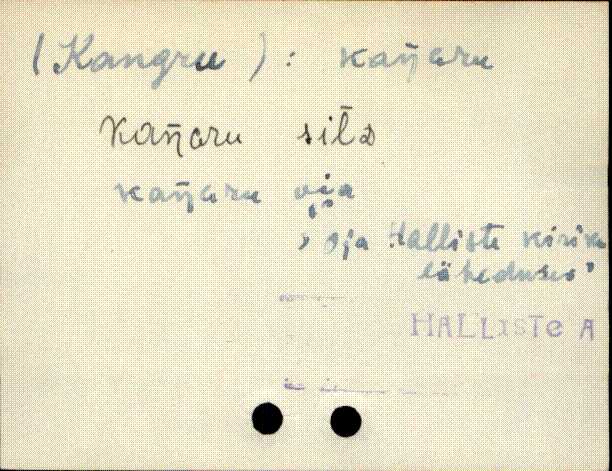 (Kangru) : kaŋ̄aru
kaŋ̄aru silD
kaŋ̄aru oja
, oja Halliste kiriku
läheduses'
HALLISTE A